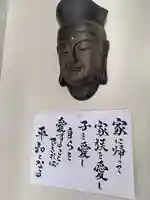 家に帰って
家族を愛し
子を愛し
自らを
愛することが
できれば
平和となる